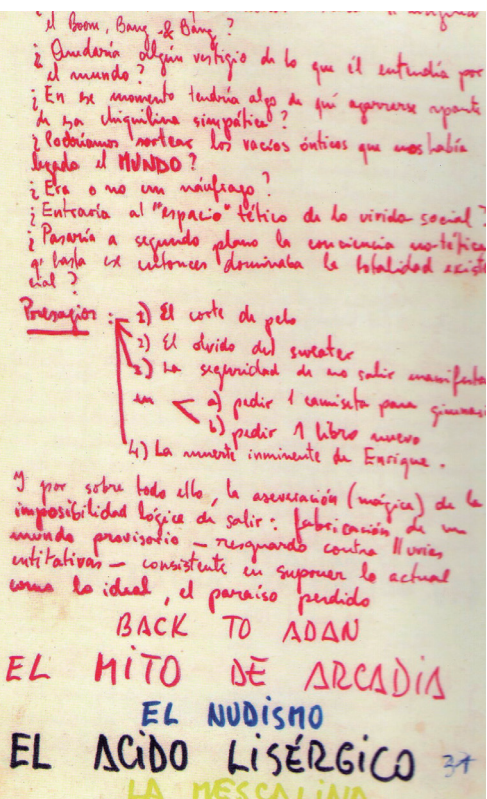 el Boom, Bang & Bang?
¿Quedaría algún vestigio de lo que él entendía por
el mundo?
¿En ese momento tendría algo de qué agarrarse aparte
de esa chiquilina simpática?
¿Podríamos sortear los vacíos ónticos que nos había
legado el MUNDO?
¿Era o no un náufrago?
¿Entraría al "espacio" tético de lo vivido social?
¿Pasaría a segundo plano la conciencia no-tética
q' hasta ese entonces dominaba la totalidad existen
cial?
Presagios:
1) El corte de pelo
2) El olvido del sweater
3) La seguridad de no salir manifestada
en
a) pedir 1 camiseta para gimnasia
b) pedir 1 libro nuevo
4) La muerte inminente de Enrique.
Y por sobre todo ello, la aseveración (mágica) de la
imposibilidad lógica de salir: fabricación de un
mundo provisorio – resguardo contra lluvias
entitativas – consistente en suponer lo actual
como lo ideal, el paraíso perdido
BACK TO ADAN
EL MITO DE ARCADIA
EL NUDISMO
EL ACIDO LISÉRGICO 31
LA MESCALINA